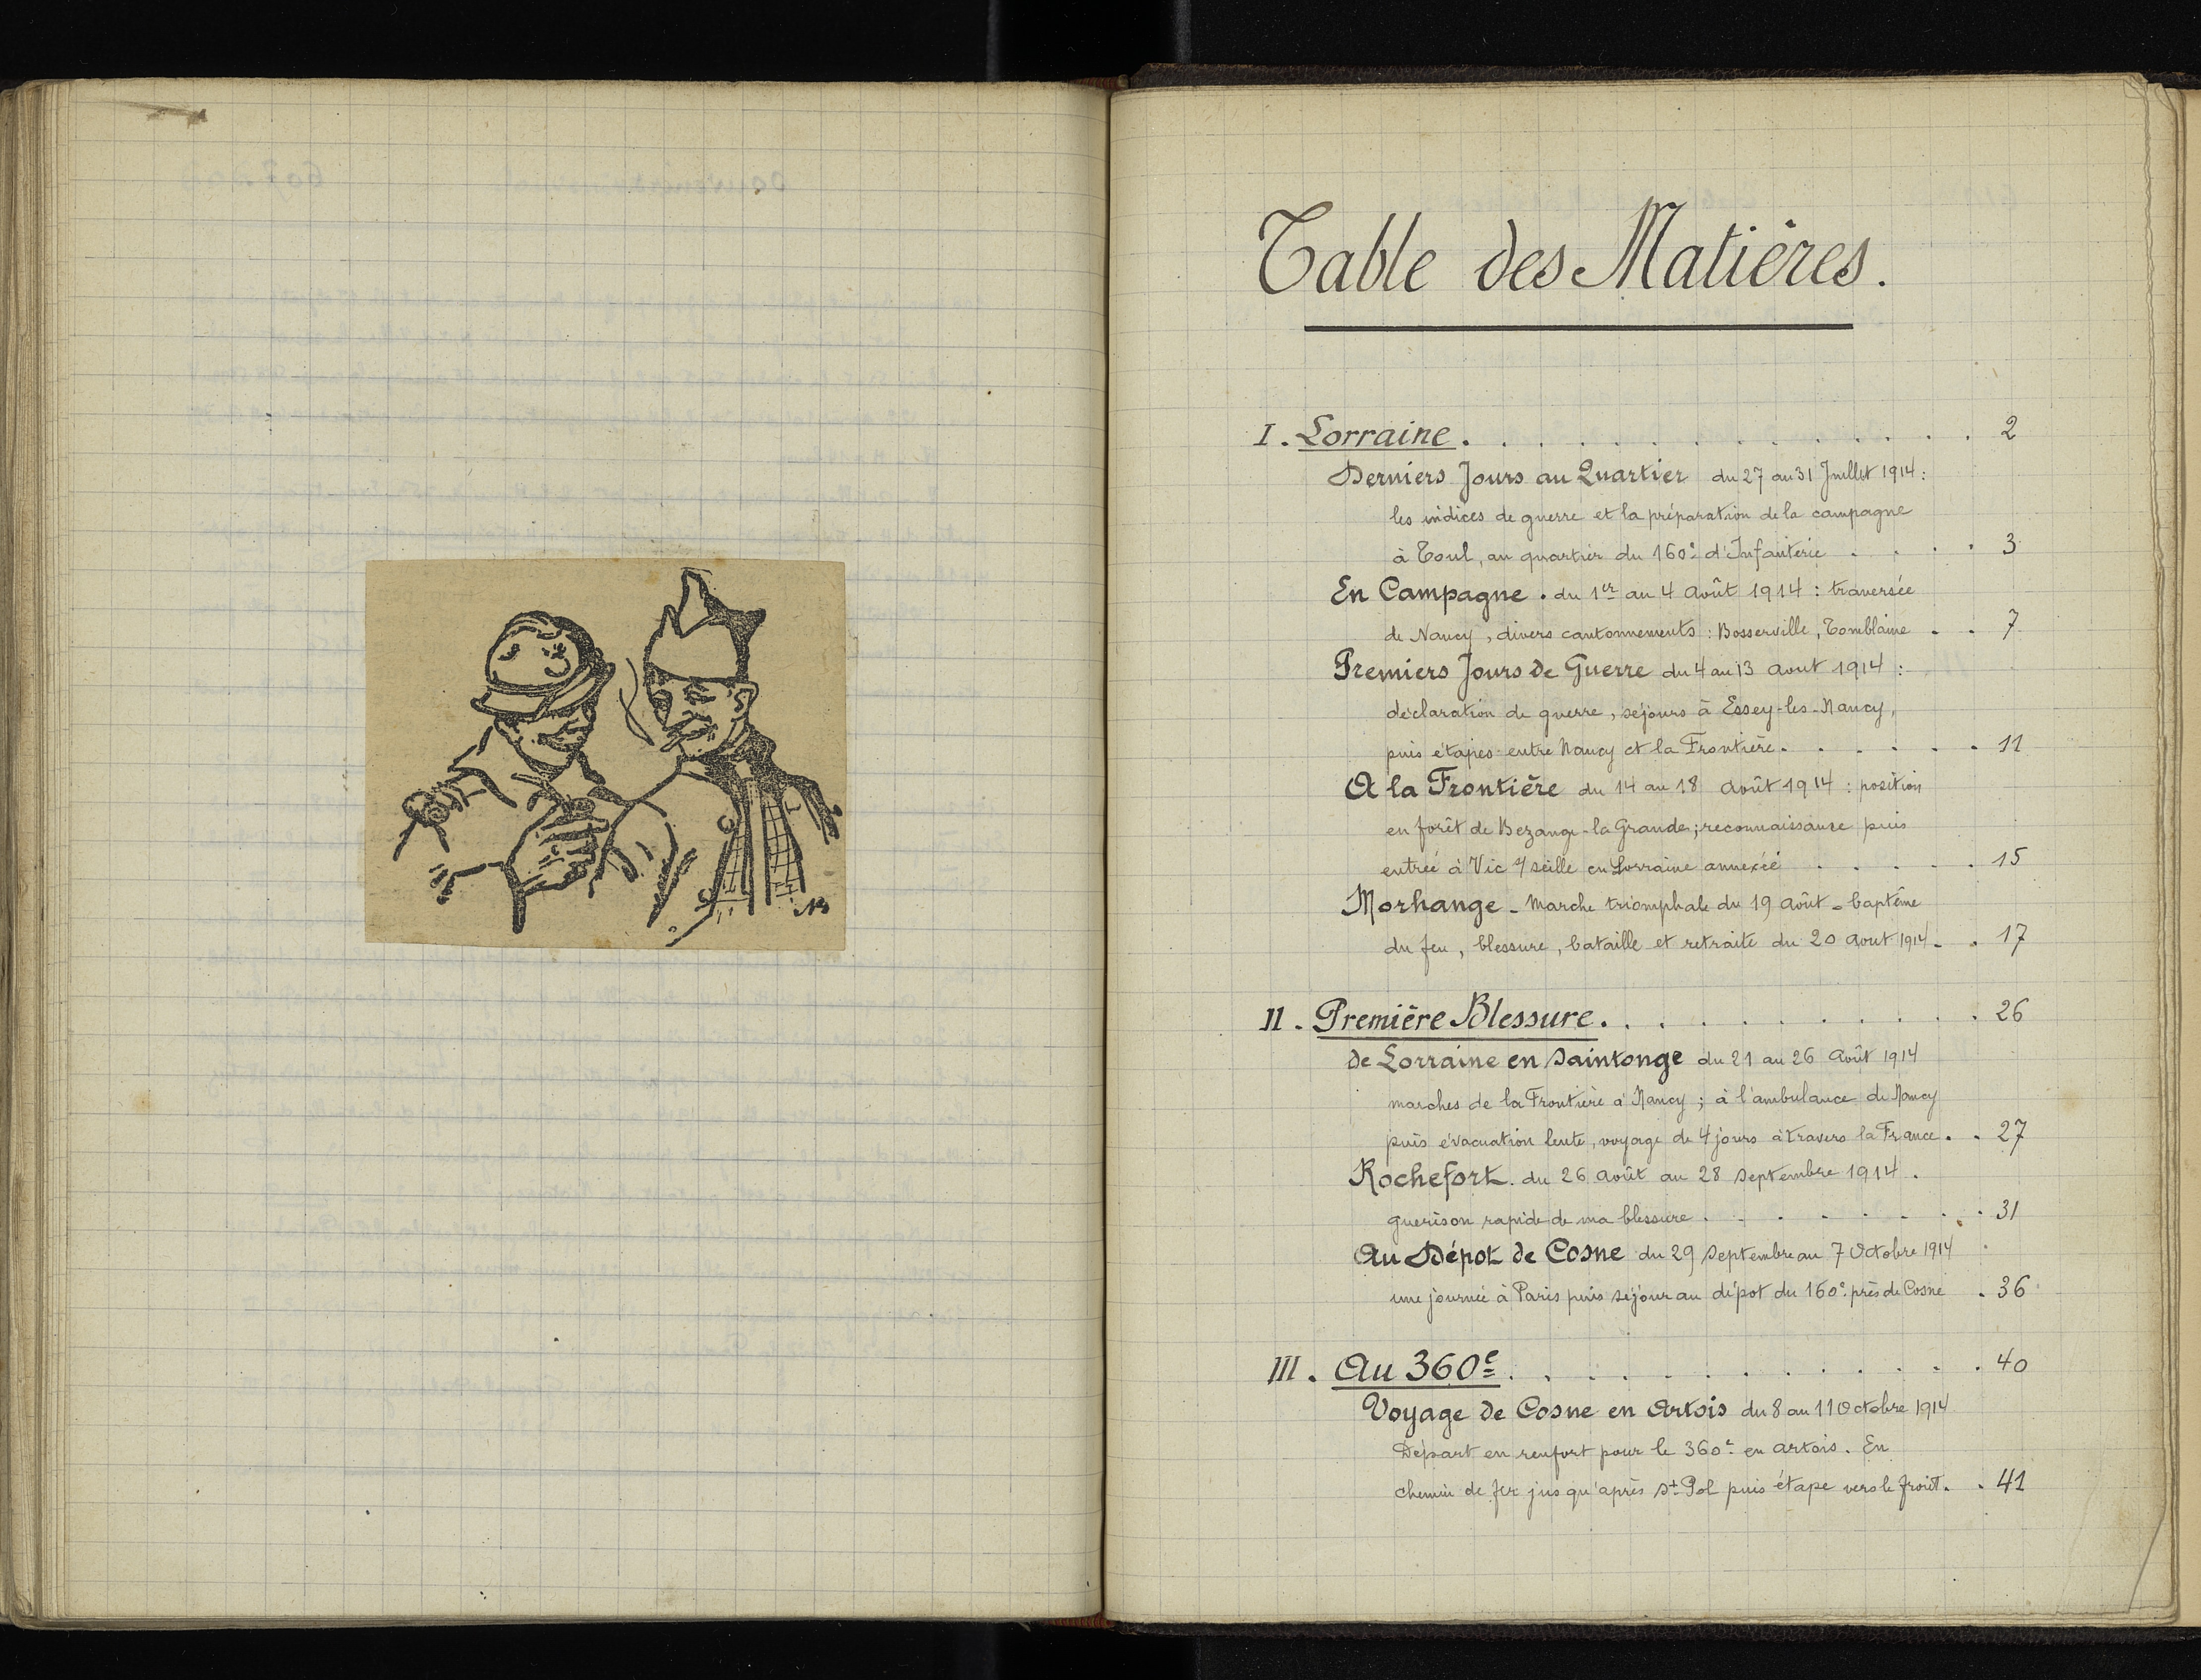 Table des Matières.
I. Lorraine. . . . . . . . . . . . . . . 2
Derniers Jours au Quartier du 27 au 31 Juillet 1914 :
les indices de guerre et la préparation de la campagne
à Toul, au quartier du 160e d'Infanterie . . . . 3
En Campagne . du 1er au 4 Août 1914 : traversée
de Nancy, divers cantonnements : Bosserville, Tomblaine . . 7
Premiers Jours de Guerre du 4 au 13 aout 1914 :
déclaration de guerre, séjours à Essey-les-Nancy,
puis étapes entre Nancy et la Frontière. . . . . . 11
A la Frontière du 14 au 18 Août 1914 : position
en forêt de Bezange-la Grande ; reconnaissance puis
entrée à Vic s/ Seille en Lorraine annexée . . . . . 15
Morhange - Marche triomphale du 19 Août - baptême
du feu, blessure, bataille et retraite du 20 aout 1914 - . 17
II. Première Blessure. . . . . . . . . . . 26
de Lorraine en Saintonge du 21 au 26 Août 1914
marches de la Frontière à Nancy ; à l'ambulance de Nancy
puis évacuation lente, voyage de 4 jours à travers la France . . 27
Rochefort. du 26 Août au 28 Septembre 1914 .
guerison rapide de ma blessure . . . . . . . . 31
Au Dépot de Cosne du 29 Septembre au 7 Octobre 1914
une journée à Paris puis séjour au dépot du 160e près de Cosne . 36
III. Au 360e . . . . . . . . . . . . 40
Voyage de Cosne en Artois du 8 au 11 Octobre 1914
Départ en renfort pour le 360e en Artois. En
chemin de fer jusqu'après St Pol puis étape vers le front. . 41